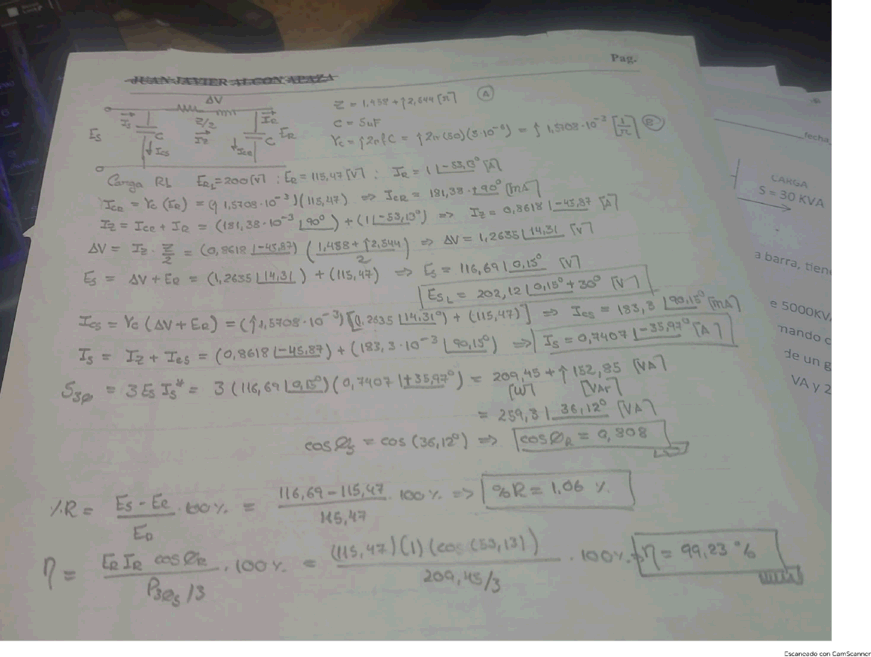 Pag.
JUAN JAVIER ALCON APAZA
ΔV
Z = 1,488 + j2,544 [Ω] (A)
C = 5uF
Yc = j2πfC = j2π(50)(5·10⁻⁶) = j 1,5708·10⁻³ [1/Ω] (B)
Es Z/2 C Iz IR C ER
Ics Ice
Carga RL ERL = 200[V] ; ER = 115,47[V] ; IR = 1∠-53,13° [A]
Ice = Yc (ER) = (j 1,5708·10⁻³)(115,47) => IcR = 181,38∠90° [mA]
Iz = Ice + IR = (181,38·10⁻³∠90°) + (1∠-53,13°) => Iz = 0,8618∠-45,87 [A]
ΔV = Iz · Z/2 = (0,8618∠-45,87) (1,488 + j2,544 / 2) => ΔV = 1,2635∠14,31 [V]
Es = ΔV + ER = (1,2635∠14,31) + (115,47) => Es = 116,69∠0,15° [V]
EsL = 202,12∠0,15° + 30° [V]
Ics = Yc (ΔV + ER) = (j1,5708·10⁻³)[(1,2635∠14,31°) + (115,47)] => Ics = 183,3∠90,15° [mA]
Is = Iz + Ics = (0,8618∠-45,87) + (183,3·10⁻³∠90,15°) => Is = 0,7407∠-35,97° [A]
S3φ = 3 Es Is* = 3 (116,69∠0,15°)(0,7407∠+35,97°) = 209,45 + j 152,85 [VA]
[W] [VAr]
= 259,3∠36,12° [VA]
cosØs = cos (36,12°) => cosØR = 0,808
%R = Es - ER / E0 · 100% = 116,69 - 115,47 / 115,47 · 100% => %R = 1,06 %
η = ER IR cosØR / P3Øs/3 · 100% = (115,47)(1)(cos(53,13)) / 209,45/3 · 100% => η = 99,23 %
fecha
CARGA
S = 30 KVA
a barra, tien
e 5000KV
nando c
de un g
VA y 2
Escaneado con CamScanner